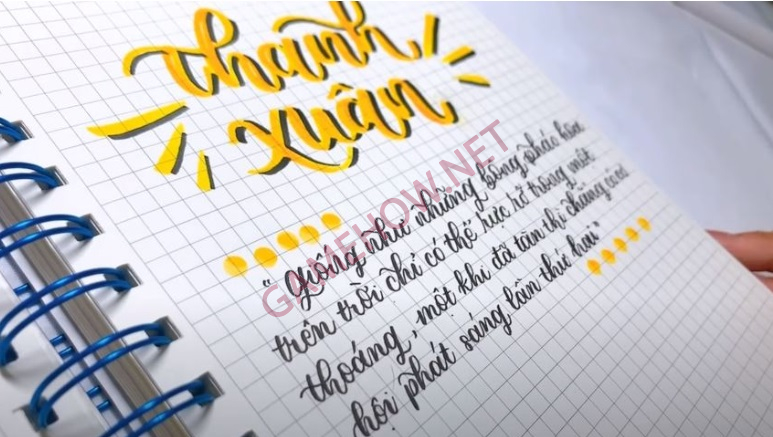 thanh
xuân
"giống như những bông pháo hoa
trên trời chỉ có thể rực rỡ trong một
thoáng, một khi đã tàn thì chẳng có cơ
hội phát sáng lần thứ hai"
GAMEHOW.NET